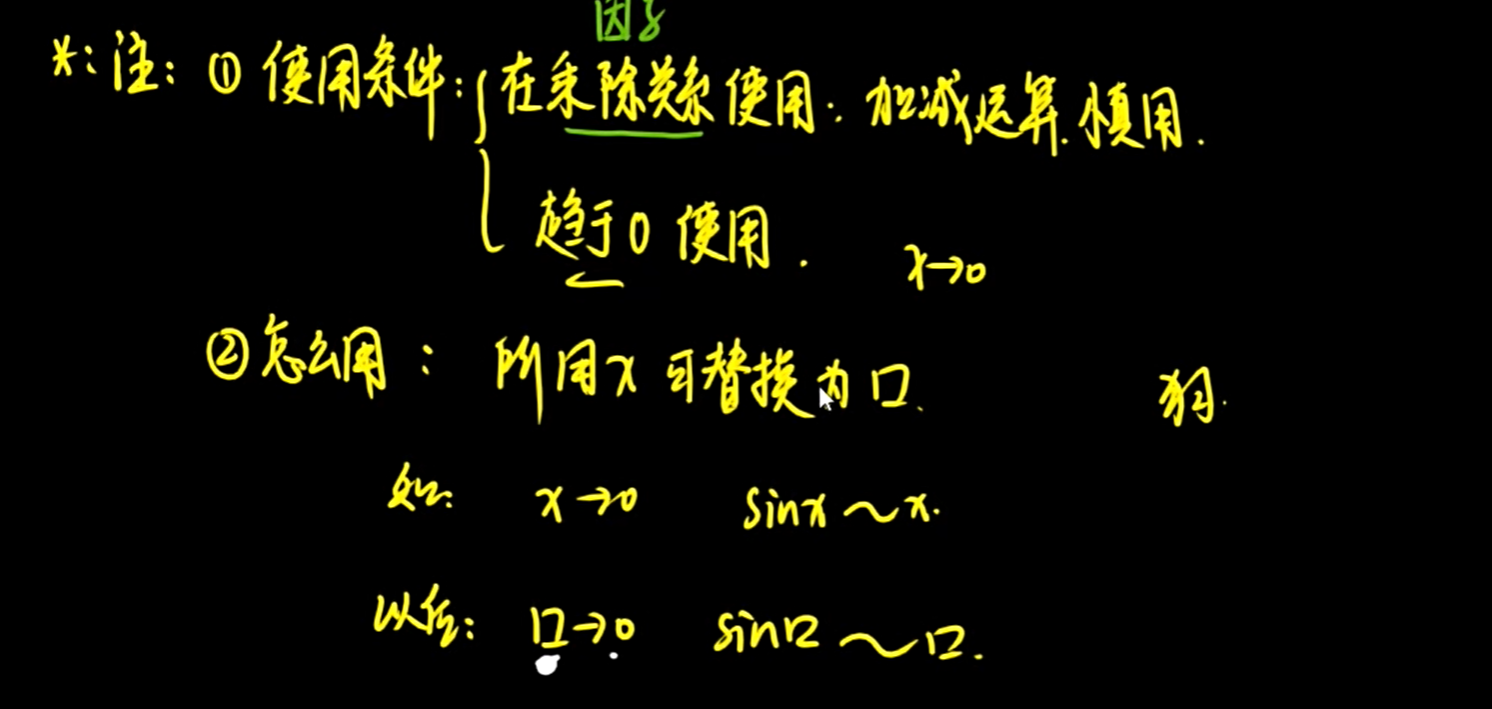 因子
*:注: ① 使用条件: { 在乘除关系使用: 加减运算.慎用.
趋于0 使用. x→0
② 怎么用: 所用x 可替换为 口. 狗.
如: x→0 sinx～x.
以后: 口→0 sin口～口.